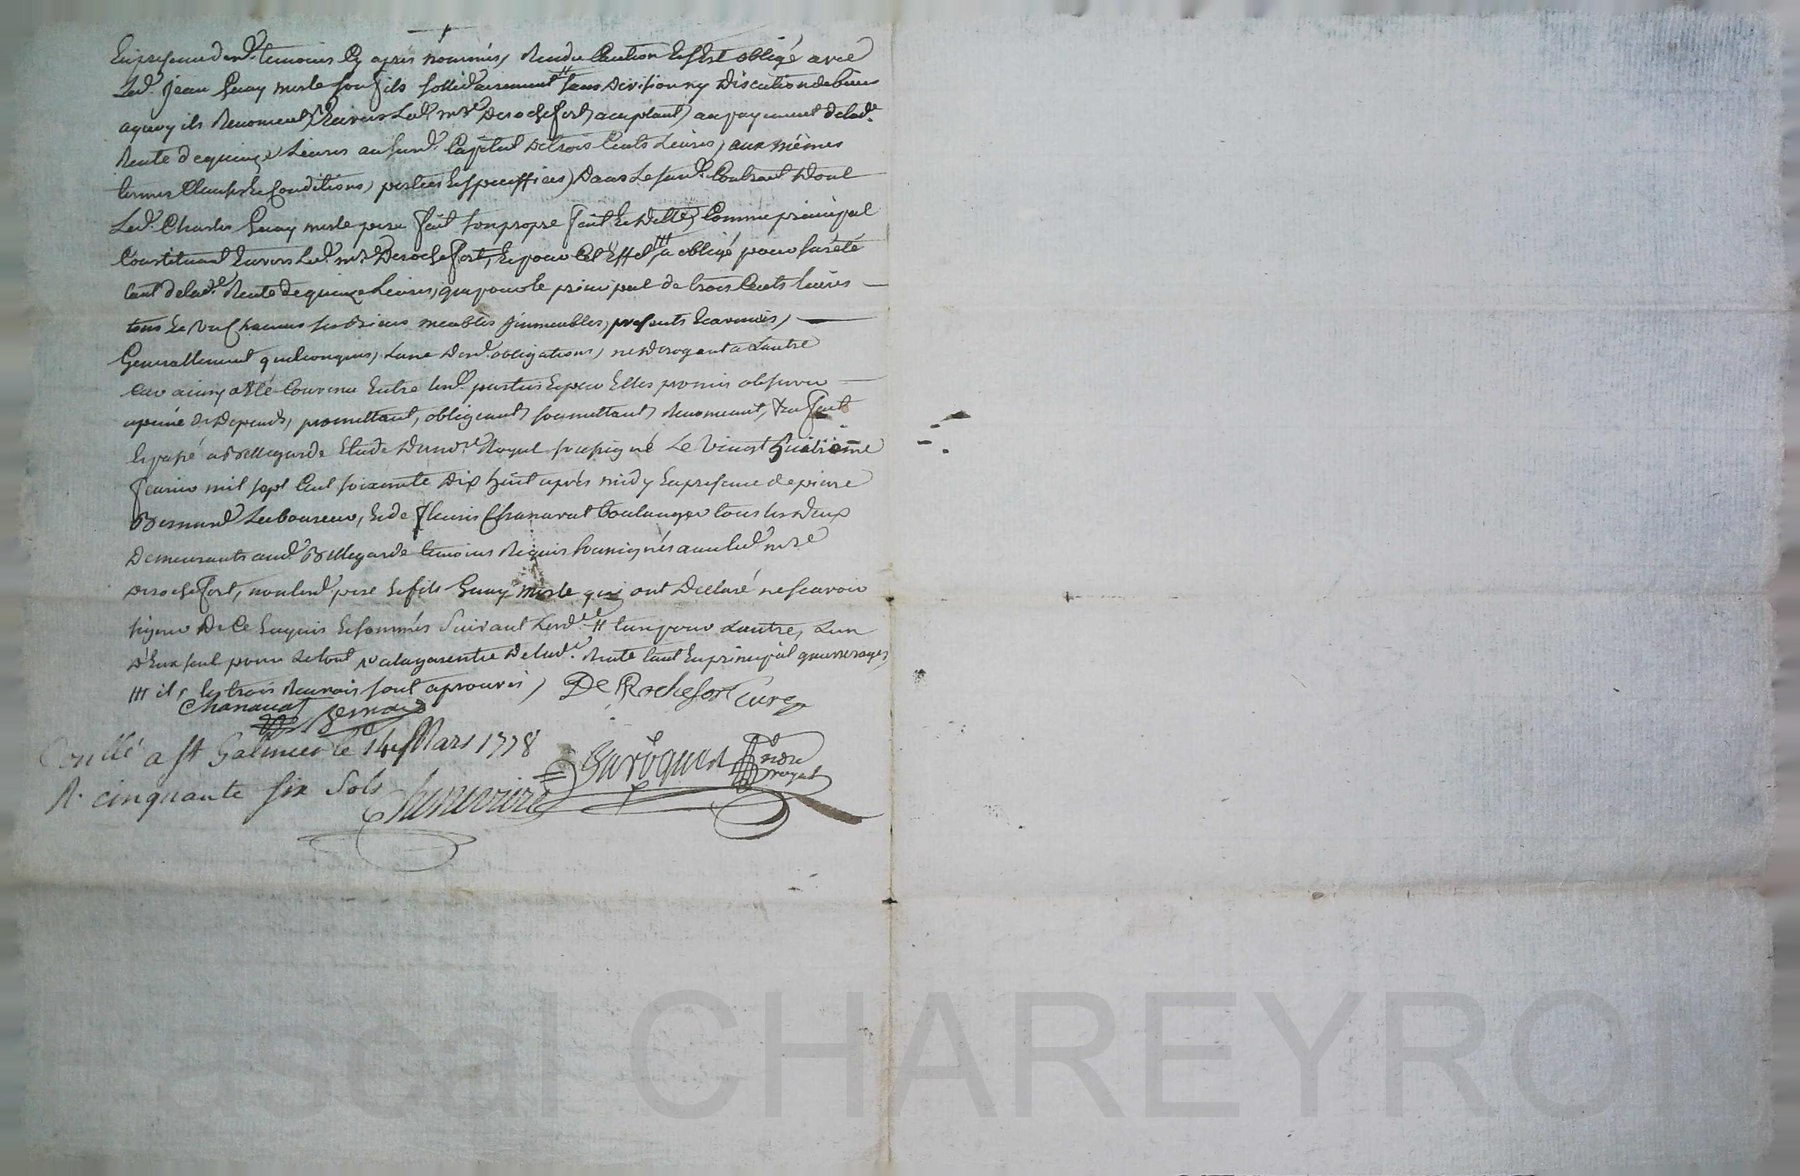 En presence dend. temoins Cy apres nommés, Rendu Caution Et s'est obligé avec
Led. Jean Guay merle son fils sollidairement # sans Division ny Discution de biens
aquoy ils Renoncent Envers Led. mre Derochefort acceptant au payement delad.e
Rente de quinze Livres au susd. Capital de trois Cents Livres, aux mêmes
termes Clauses Et Conditions, portées Et speciffiées Dans Le susd. Contrat Dont
Led. Charles Guay merle pere fait son propre fait Et Dette Comme principal
Constituant Envers Led. mre Derochefort, Et pour Cet Effet /// a obligé pour sureté
tant delad.e Rente de quinze Livres, que pour le principal de trois Cents livres —
tous Et Un Chacuns ses Biens meubles immeubles, presents Et avenirs, —
Generallement quelconques, L'une Desd. obligations, ne Derogeant a L'autre
Car ainsy a Eté Convenu Entre lesd. parties Et par Elles promis observer —
a peine de Depends, promettant, obligeant, soumettant, Renonceant, &a fait
Et passé a Bellegarde Etude Du nore Royal soussigné Le Vingt quatrieme
fevrier mil sept Cent soixante Dix huit après midy En presence de pierre
Bernard Laboureur, Et de fleuris Chanavat boulanger tous les Deux
Demeurants aud. Bellegarde temoins Requis soussignés avec led. mre
Derochefort, non lesd. pere Et fils Guay merle qui ont Declaré ne scavoir
signer De Ce Enquis Et sommés Suivant L'ord.e # l'un pour L'autre, L'un
D'Eux seul pour Le tout / a la garentie De lad.e Rente tant En principal qu'arrerages,
/// il, les trois Renvois sont aprouvés, De Rochefort Curé
Chanavat Bernard
Conllé a St Galmier le 14 Mars 1778
Baroquet nore royal
R. cinquante six Sols Chenevriere
ascal CHAREYRON